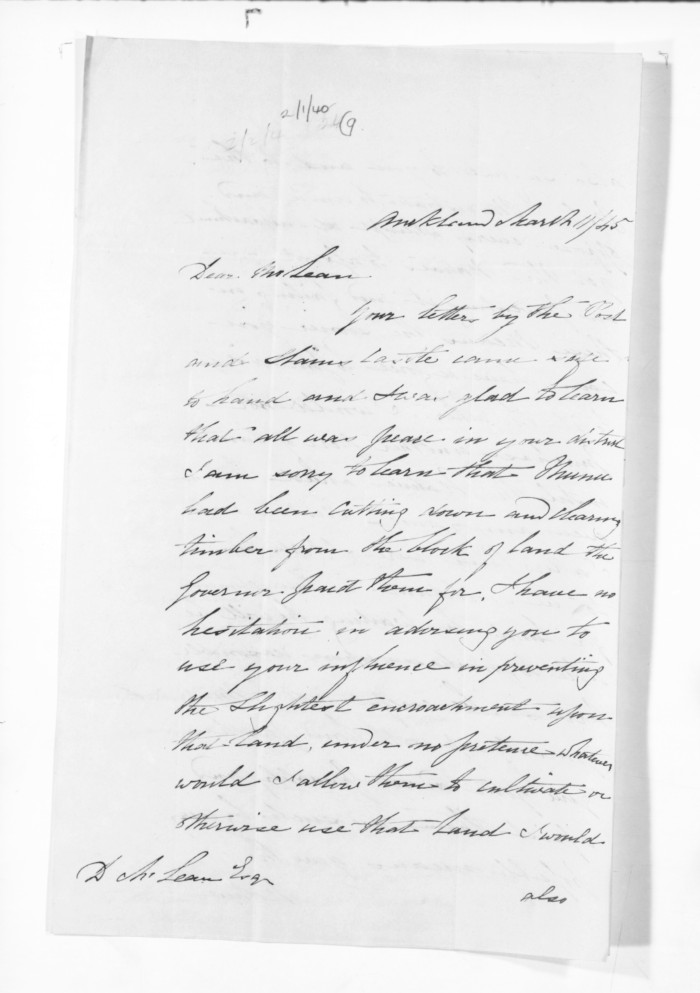 2/1/40
(9
Auckland March 11/45
Dear McLean
Your letters by the Post
and Slains Castle came safe
to hand and I was glad to learn
that all was peace in your district
I am sorry to learn that
had been cutting down and clearing
timber from the block of land the
Governor paid them for, I have no
hesitation in advising you to
use your influence in preventing
the slightest encroachment upon
that land, under no pretence whatever
would I allow them to cultivate or
otherwise use that land I would
D McLean Esqr
also